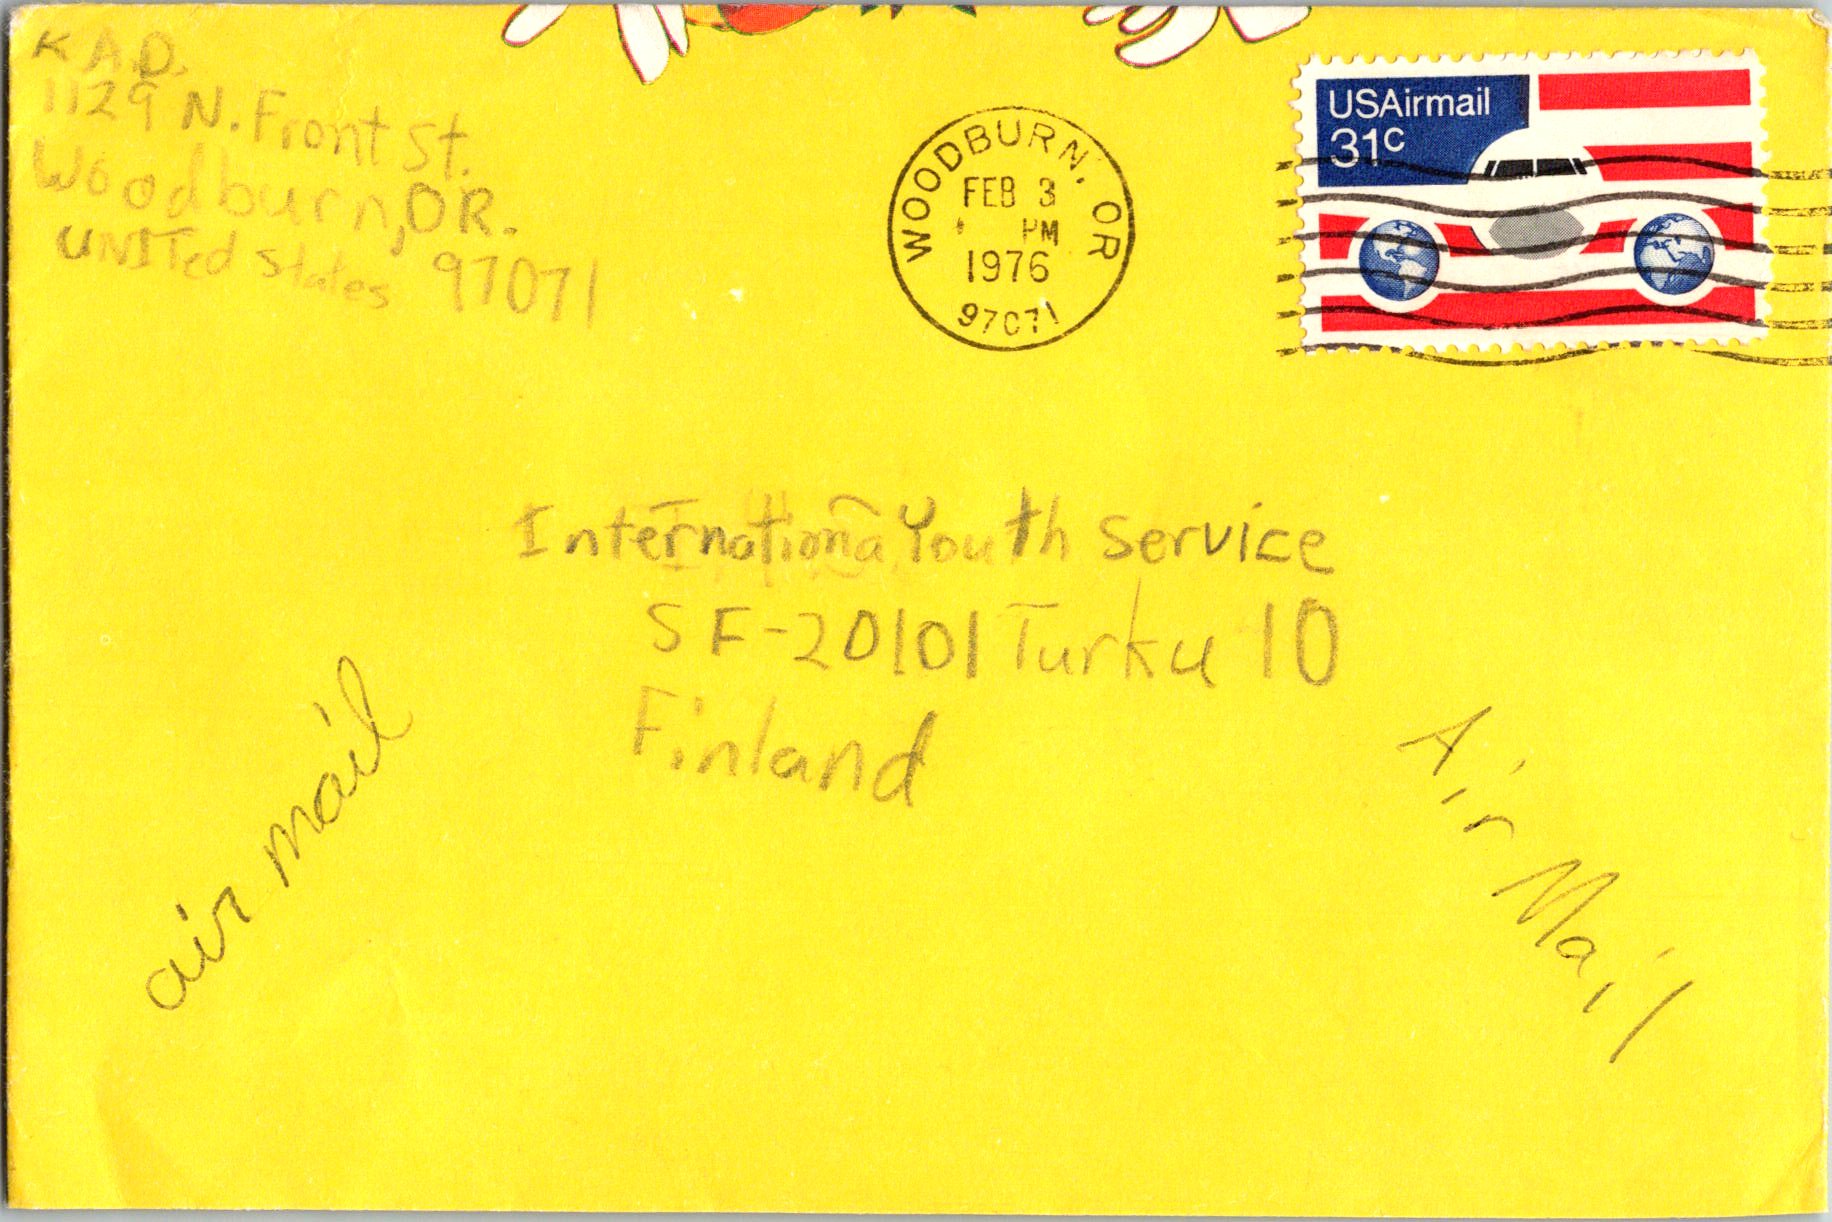 K.A.D.
1129 N. Front St.
Woodburn, OR.
UNITed States 97071
WOODBURN, OR
FEB 3
PM
1976
97071
USAirmail
31c
Internationa Youth Service
SF-20101 Turku 10
Finland
air mail
Air Mail